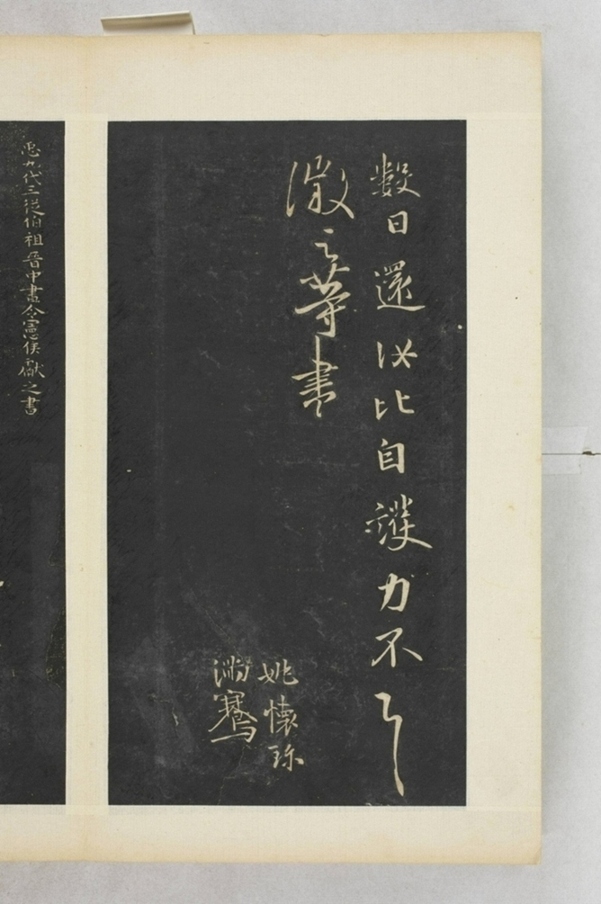 數日還汝比自護力不一一
徽之等書
姚懷珍
滿騫
九代三從伯祖晉中書令憲侯獻之書